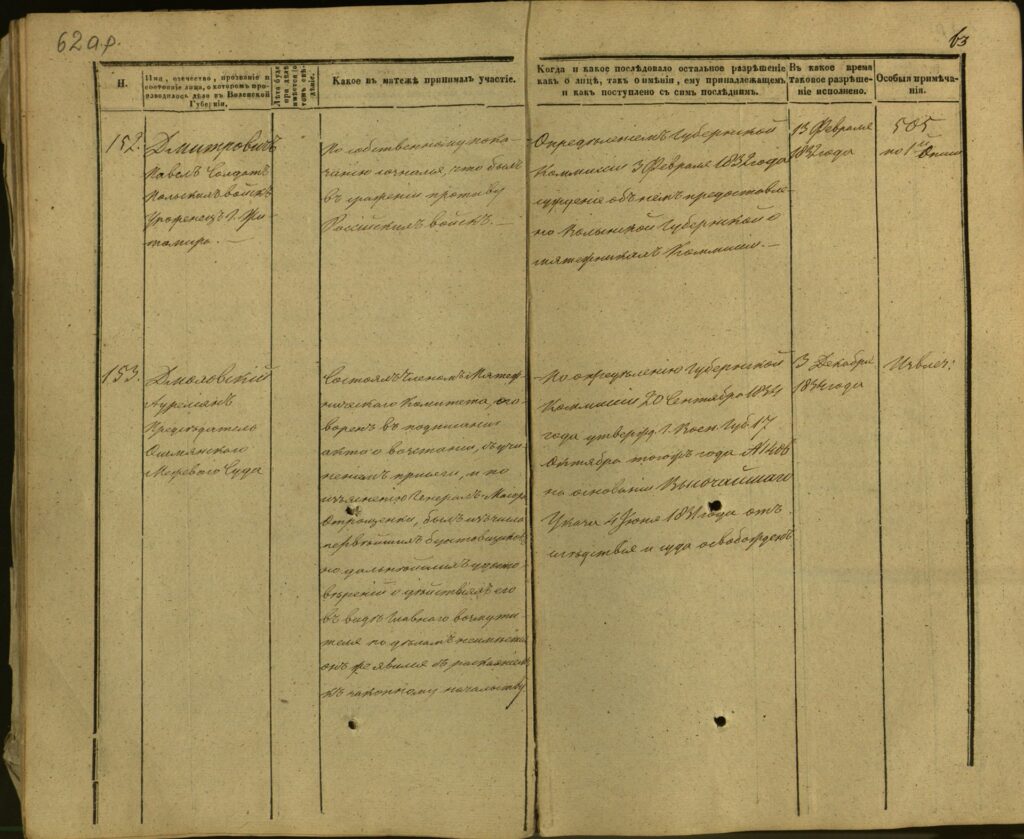 62 а.р.
63
Н.
Имя, отечество, прозваніе и
состояніе лица, о которомъ про-
изводилось дѣло въ Виленской
Губерніи.
Какое въ мятежѣ принималъ участіе.
Когда и какое послѣдовало остальное разрѣшеніе
какъ о лицѣ, такъ о имѣніи, ему принадлежащемъ
и какъ поступлено съ симъ послѣднимъ.
Въ какое время
таковое разрѣше-
ніе исполнено.
Особыя примѣча-
нія.
152.
Дмитровичъ
Павелъ Солдатъ
Польскихъ войскъ
Уроженецъ г. Жи-
томира.—
По собственному пока-
занію сознался, что былъ
въ сраженіи противу
Россійскихъ войскъ.—
Опредѣленіемъ Губернской
Коммисіи 3 Февраля 1832 года
сужденіе объ немъ предоставле-
но Волынской Губернской о
мятежникахъ Коммисіи.—
13 Февраля
1832 года
505
по 1й Описи
153.
Дмоховскій
Аурелянъ
Предсѣдатель
Ошмянского
Межевого Суда
Состоялъ Членомъ Мятеж-
ническаго Комитета, ого-
воренъ въ подписаніи
акта о возстаніи, въ учи-
неніи присяги, и по
изъясненію Генералъ-Маіора
Отрощенки, былъ изъ числа
первѣйшихъ бунтовщиковъ,
но дальнѣйшихъ удосто-
вѣреній о дѣйствіяхъ его
въ видѣ главнаго возмути-
теля по дѣламъ неимѣется
онъ же явился съ раскаяніемъ
къ законному начальству
По опредѣленію Губернской
Коммисіи 20 Сентября 1834
года утвержд. Г. Воен. Губ. 17
Октября тогожъ года №1406
на основаніи Высочайшаго
Указа 4 Іюня 1831 года отъ
слѣдствія и суда освобожденъ
3 Декабря
1834 года
Извлеч: